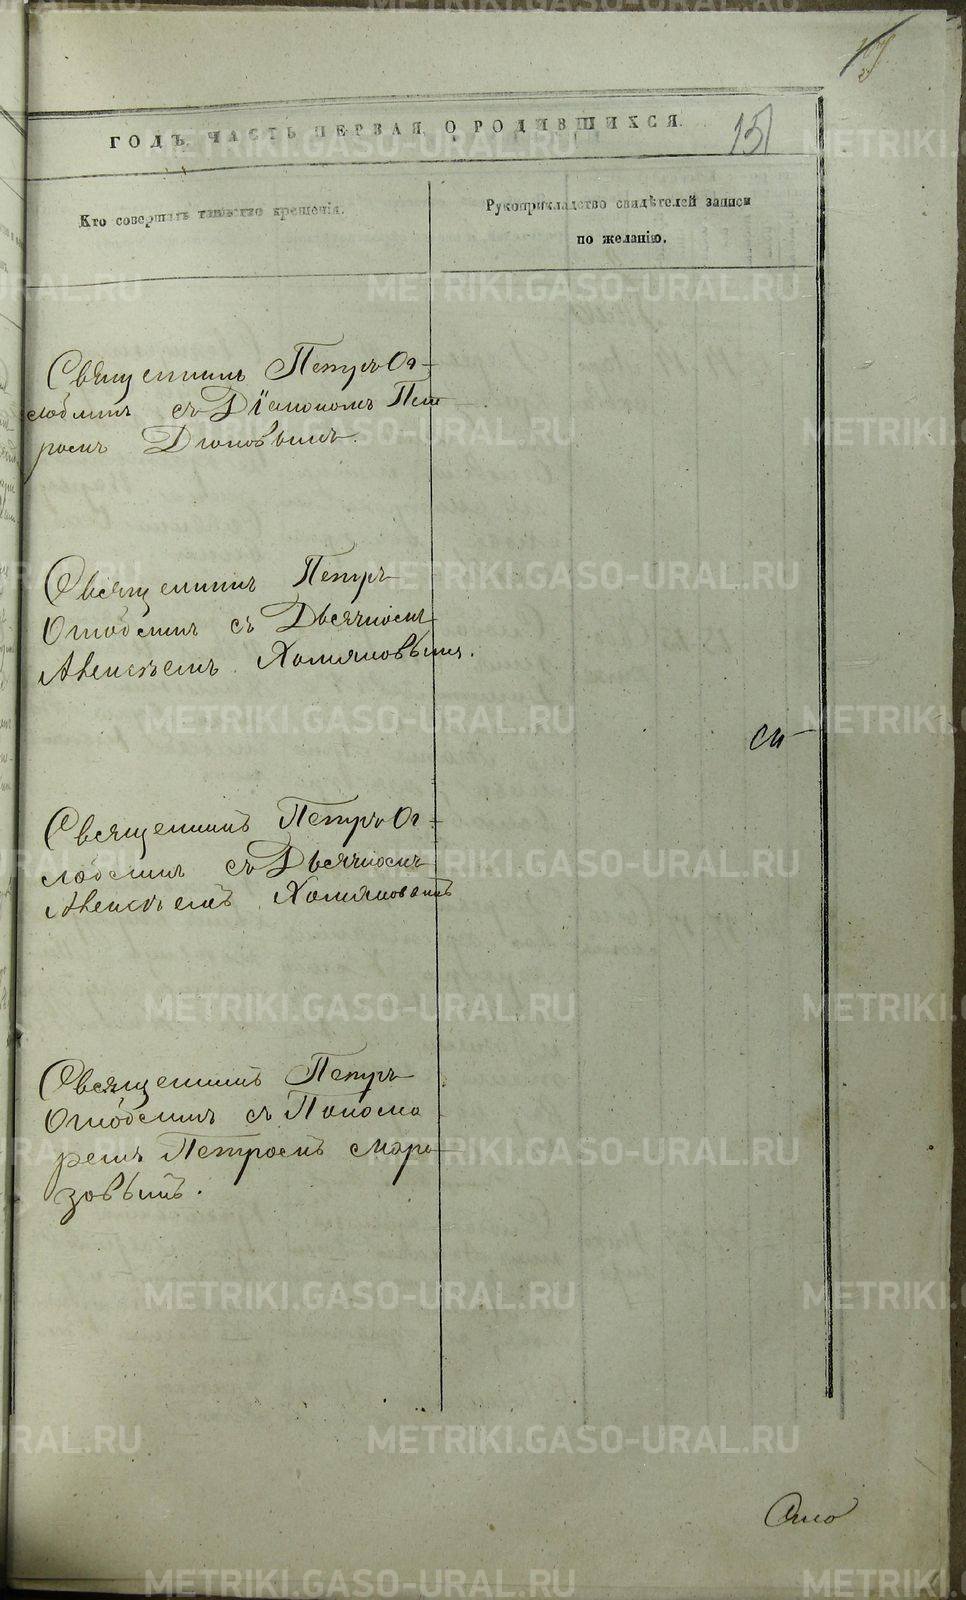 ГОДЪ ЧАСТЬ ПЕРВАЯ, О РОДИВШИХСЯ.
151
Кто совершалъ таинство крещенія.
Рукоприкладство свидѣтелей записи
по желанію.
Священникъ Петръ Ог-
лоблинъ съ Діакономъ Пет
ромъ
Священникъ Петръ
Оглоблинъ съ Дьячкомъ
Алексѣемъ Холмяковымъ.
Священникъ Петръ Ог-
лоблинъ съ Дьячкомъ
Алексѣемъ Холмяковымъ
Священникъ Петръ
Оглоблинъ съ Понома
ремъ Петромъ Моро-
зовымъ.
METRIKI.GASO-URAL.RU